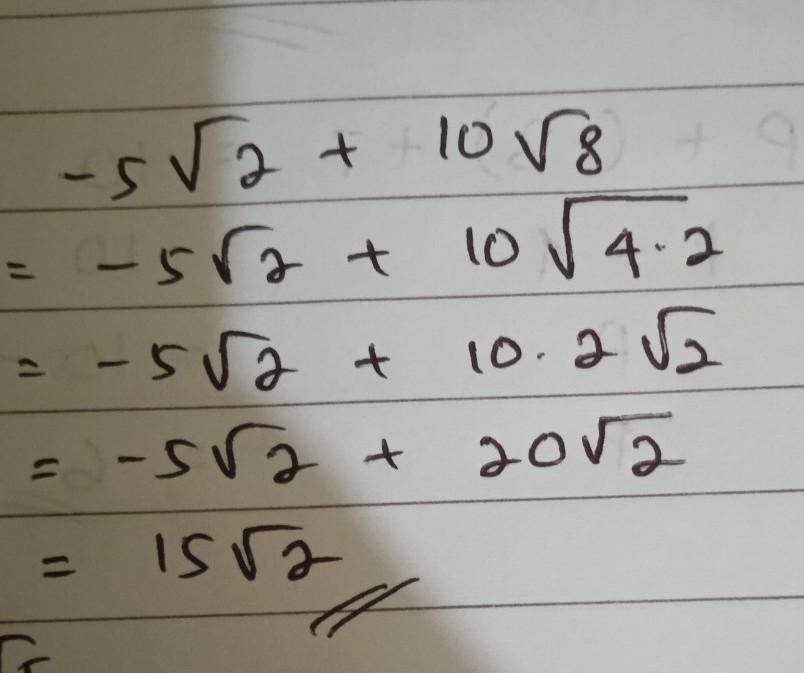 -5√2 + 10√8
= -5√2 + 10√4·2
= -5√2 + 10.2√2
= -5√2 + 20√2
= 15√2